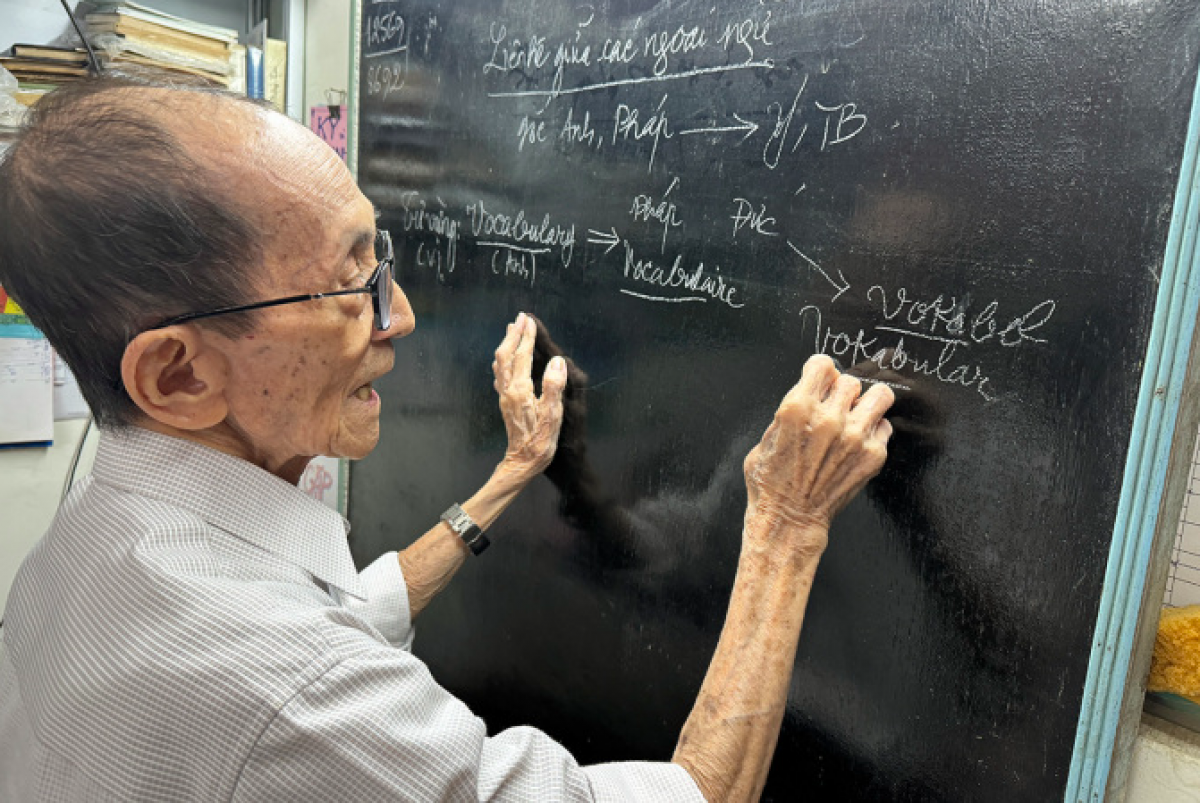 12569
8692
Liên hệ giữa các ngoại ngữ
gốc Anh, Pháp → Ý, TB
Từ vựng: Vocabulary ⇒ Pháp Đức
(V) (Anh) Vocabulaire Vokabel
Vokabular
KỶ